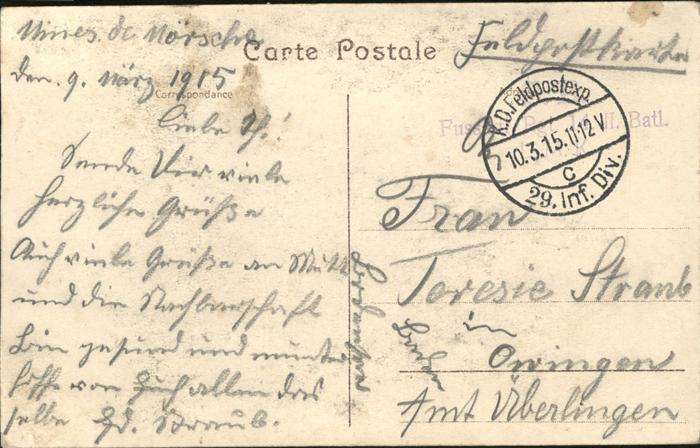 Mines de
den 9. März 1915
Carte Postale
Correspondance
Feldpostkarte
K.D. Feldpostexp.
10.3.15.11-12 V
c
29. Inf. Div.
Batl.
Liebe Th.!
Sende Dir viele
herzliche Grüße
Auch viele Grüße an
und die Nachbarschaft
bin gesund und munter
hoffe von Euch allen das
selbe Straub.
Frau
Teresie Straub
in
Owingen
Amt Überlingen
Baden